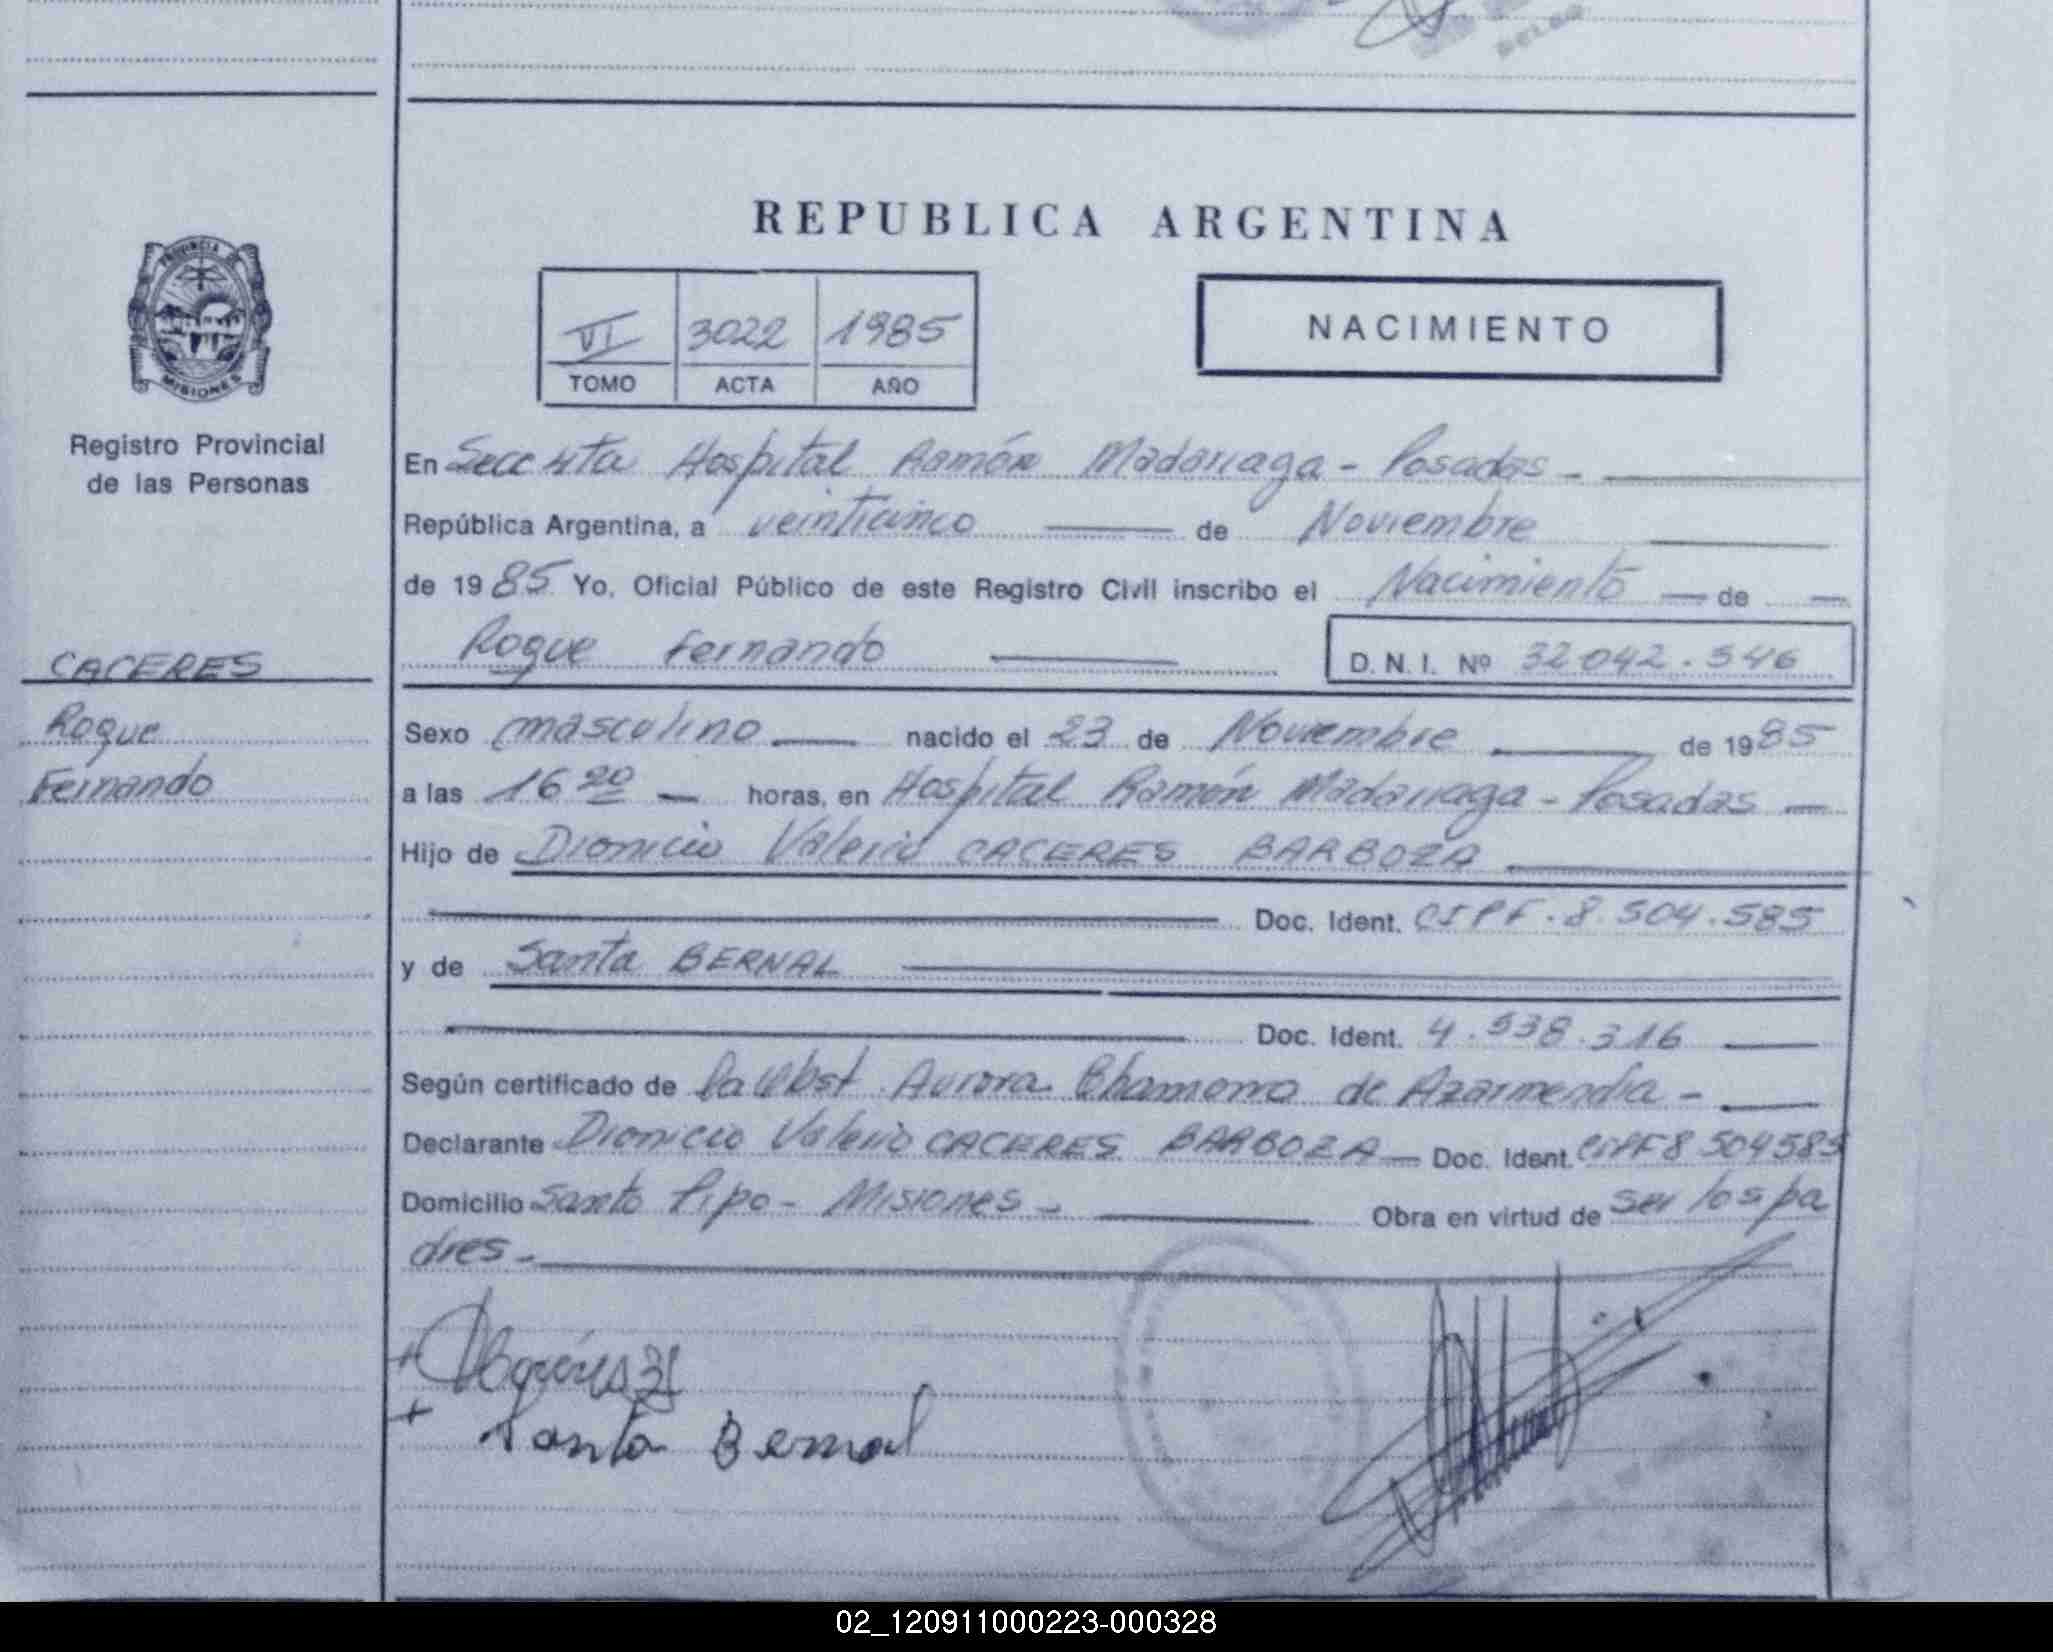 DELEG
REPUBLICA ARGENTINA
PROVINCIA DE
MISIONES
Registro Provincial
de las Personas
VI 3022 1985
TOMO ACTA AÑO
NACIMIENTO
En Secc 4ta Hospital Ramón Madariaga - Posadas -
República Argentina, a veinticinco de Noviembre
de 1985 Yo, Oficial Público de este Registro Civil inscribo el Nacimiento de
Roque Fernando
D. N. I. Nº 32042.546
CACERES
Roque
Fernando
Sexo masculino nacido el 23 de Noviembre de 1985
a las 16 20 horas, en Hospital Ramón Madariaga - Posadas
Hijo de Dionicio Valerio CACERES BARBOZA
Doc. Ident. CIPF. 8.504.585
y de Santa BERNAL
Doc. Ident. 4.538.316
Según certificado de Aurora Chamorro de Azarmendia -
Declarante Dionicio Valerio CACERES BARBOZA Doc. Ident. CIPF 8 504585
Domicilio Santo Pipo - Misiones - Obra en virtud de ser los pa
dres -
Santa Bernal
02_120911000223-000328